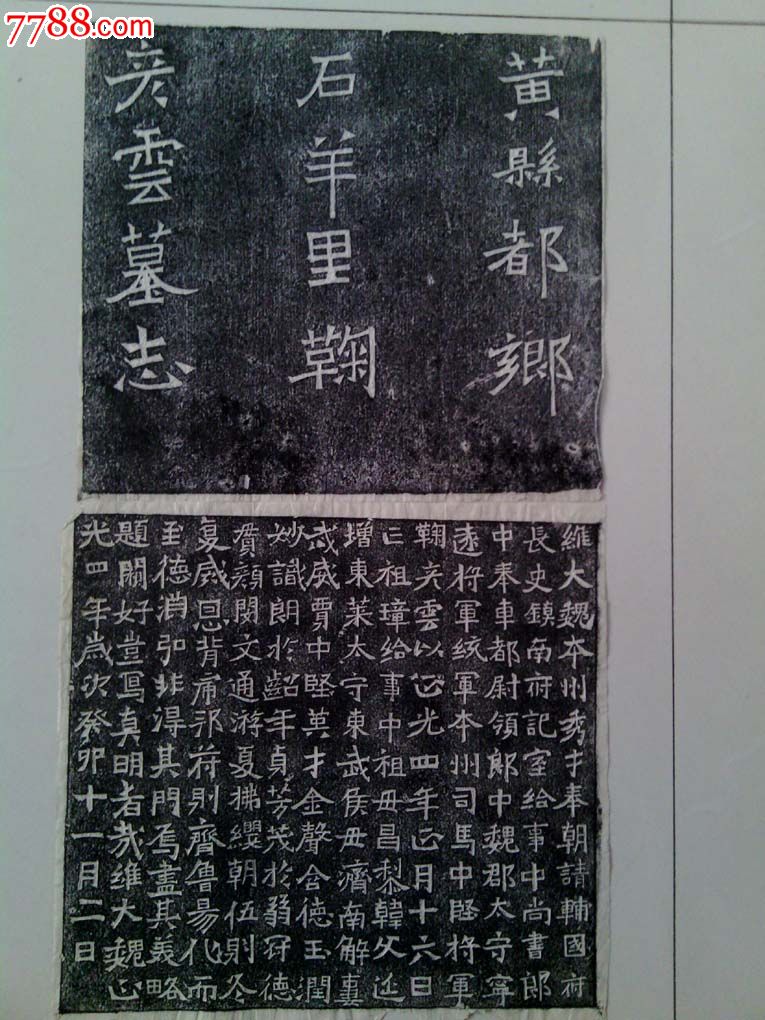 7788.com
黃縣都鄉
石羊里鞠
彦雲墓志
維大魏本州秀才奉朝請輔國府
長史鎮南府記室給事中尚書郎
中奉車都尉領郎中魏郡太守寧
遠將軍統軍本州司馬中堅將軍
鞠彦雲以正光四年正月十六日
亡祖璋給事中祖母昌黎韓父延
增東萊太守東武侯母濟南解妻
武威賈中堅英才金聲含德玉潤
妙識朗於齠年貞芳茂於弱冠德
貫顏閔文通游夏拂纓朝伍則冬
夏威恩背帝邦苻則齊魯易化而
至德消弘非淂其門焉盡其美略
題闕好豈寫真明者哉維大魏正
光四年歲次癸卯十一月二日